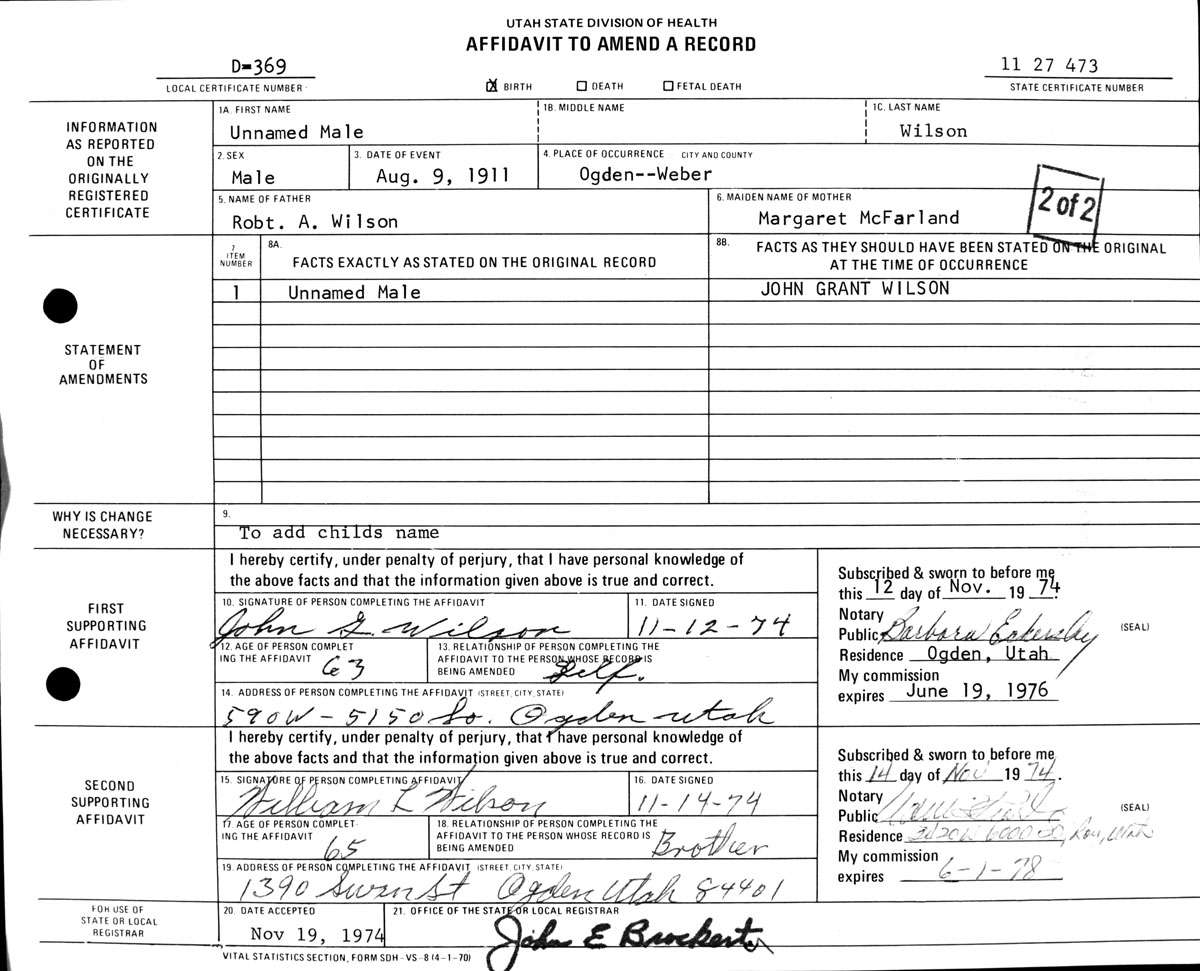 UTAH STATE DIVISION OF HEALTH
AFFIDAVIT TO AMEND A RECORD
D-369
LOCAL CERTIFICATE NUMBER
X BIRTH
DEATH
FETAL DEATH
11 27 473
STATE CERTIFICATE NUMBER
INFORMATION
AS REPORTED
ON THE
ORIGINALLY
REGISTERED
CERTIFICATE
1A. FIRST NAME
Unnamed Male
1B. MIDDLE NAME
1C. LAST NAME
Wilson
2. SEX
Male
3. DATE OF EVENT
Aug. 9, 1911
4. PLACE OF OCCURRENCE - CITY AND COUNTY
Ogden--Weber
5. NAME OF FATHER
Robt. A. Wilson
6. MAIDEN NAME OF MOTHER
Margaret McFarland
2 of 2
STATEMENT
OF
AMENDMENTS
7
ITEM
NUMBER
8A.
FACTS EXACTLY AS STATED ON THE ORIGINAL RECORD
8B. FACTS AS THEY SHOULD HAVE BEEN STATED ON THE ORIGINAL
AT THE TIME OF OCCURRENCE
1 Unnamed Male JOHN GRANT WILSON
WHY IS CHANGE
NECESSARY?
9.
To add childs name
FIRST
SUPPORTING
AFFIDAVIT
I hereby certify, under penalty of perjury, that I have personal knowledge of
the above facts and that the information given above is true and correct.
10. SIGNATURE OF PERSON COMPLETING THE AFFIDAVIT
John G. Wilson
11. DATE SIGNED
11-12-74
12. AGE OF PERSON COMPLET
ING THE AFFIDAVIT
63
13. RELATIONSHIP OF PERSON COMPLETING THE
AFFIDAVIT TO THE PERSON WHOSE RECORD IS
BEING AMENDED
Self.
14. ADDRESS OF PERSON COMPLETING THE AFFIDAVIT (STREET, CITY, STATE)
590W - 5150 So. Ogden Utah
Subscribed & sworn to before me
this 12 day of Nov. 19 74.
Notary
Public Barbara Eckersley (SEAL)
Residence Ogden, Utah
My commission
expires June 19, 1976
SECOND
SUPPORTING
AFFIDAVIT
I hereby certify, under penalty of perjury, that I have personal knowledge of
the above facts and that the information given above is true and correct.
15. SIGNATURE OF PERSON COMPLETING AFFIDAVIT
William L Wilson
16. DATE SIGNED
11-14-74
17. AGE OF PERSON COMPLET-
ING THE AFFIDAVIT
65
18. RELATIONSHIP OF PERSON COMPLETING THE
AFFIDAVIT TO THE PERSON WHOSE RECORD IS
BEING AMENDED
Brother
19. ADDRESS OF PERSON COMPLETING THE AFFIDAVIT (STREET, CITY, STATE)
1390 St Ogden Utah 84401
Subscribed & sworn to before me
this 14 day of Nov 19 74.
Notary
Public (SEAL)
Residence Roy, Utah
My commission
expires 6-1-78
FOR USE OF
STATE OR LOCAL
REGISTRAR
20. DATE ACCEPTED
Nov 19, 1974
21. OFFICE OF THE STATE OR LOCAL REGISTRAR
John E Brockert
VITAL STATISTICS SECTION, FORM SDH-VS-8 (4-1-70)